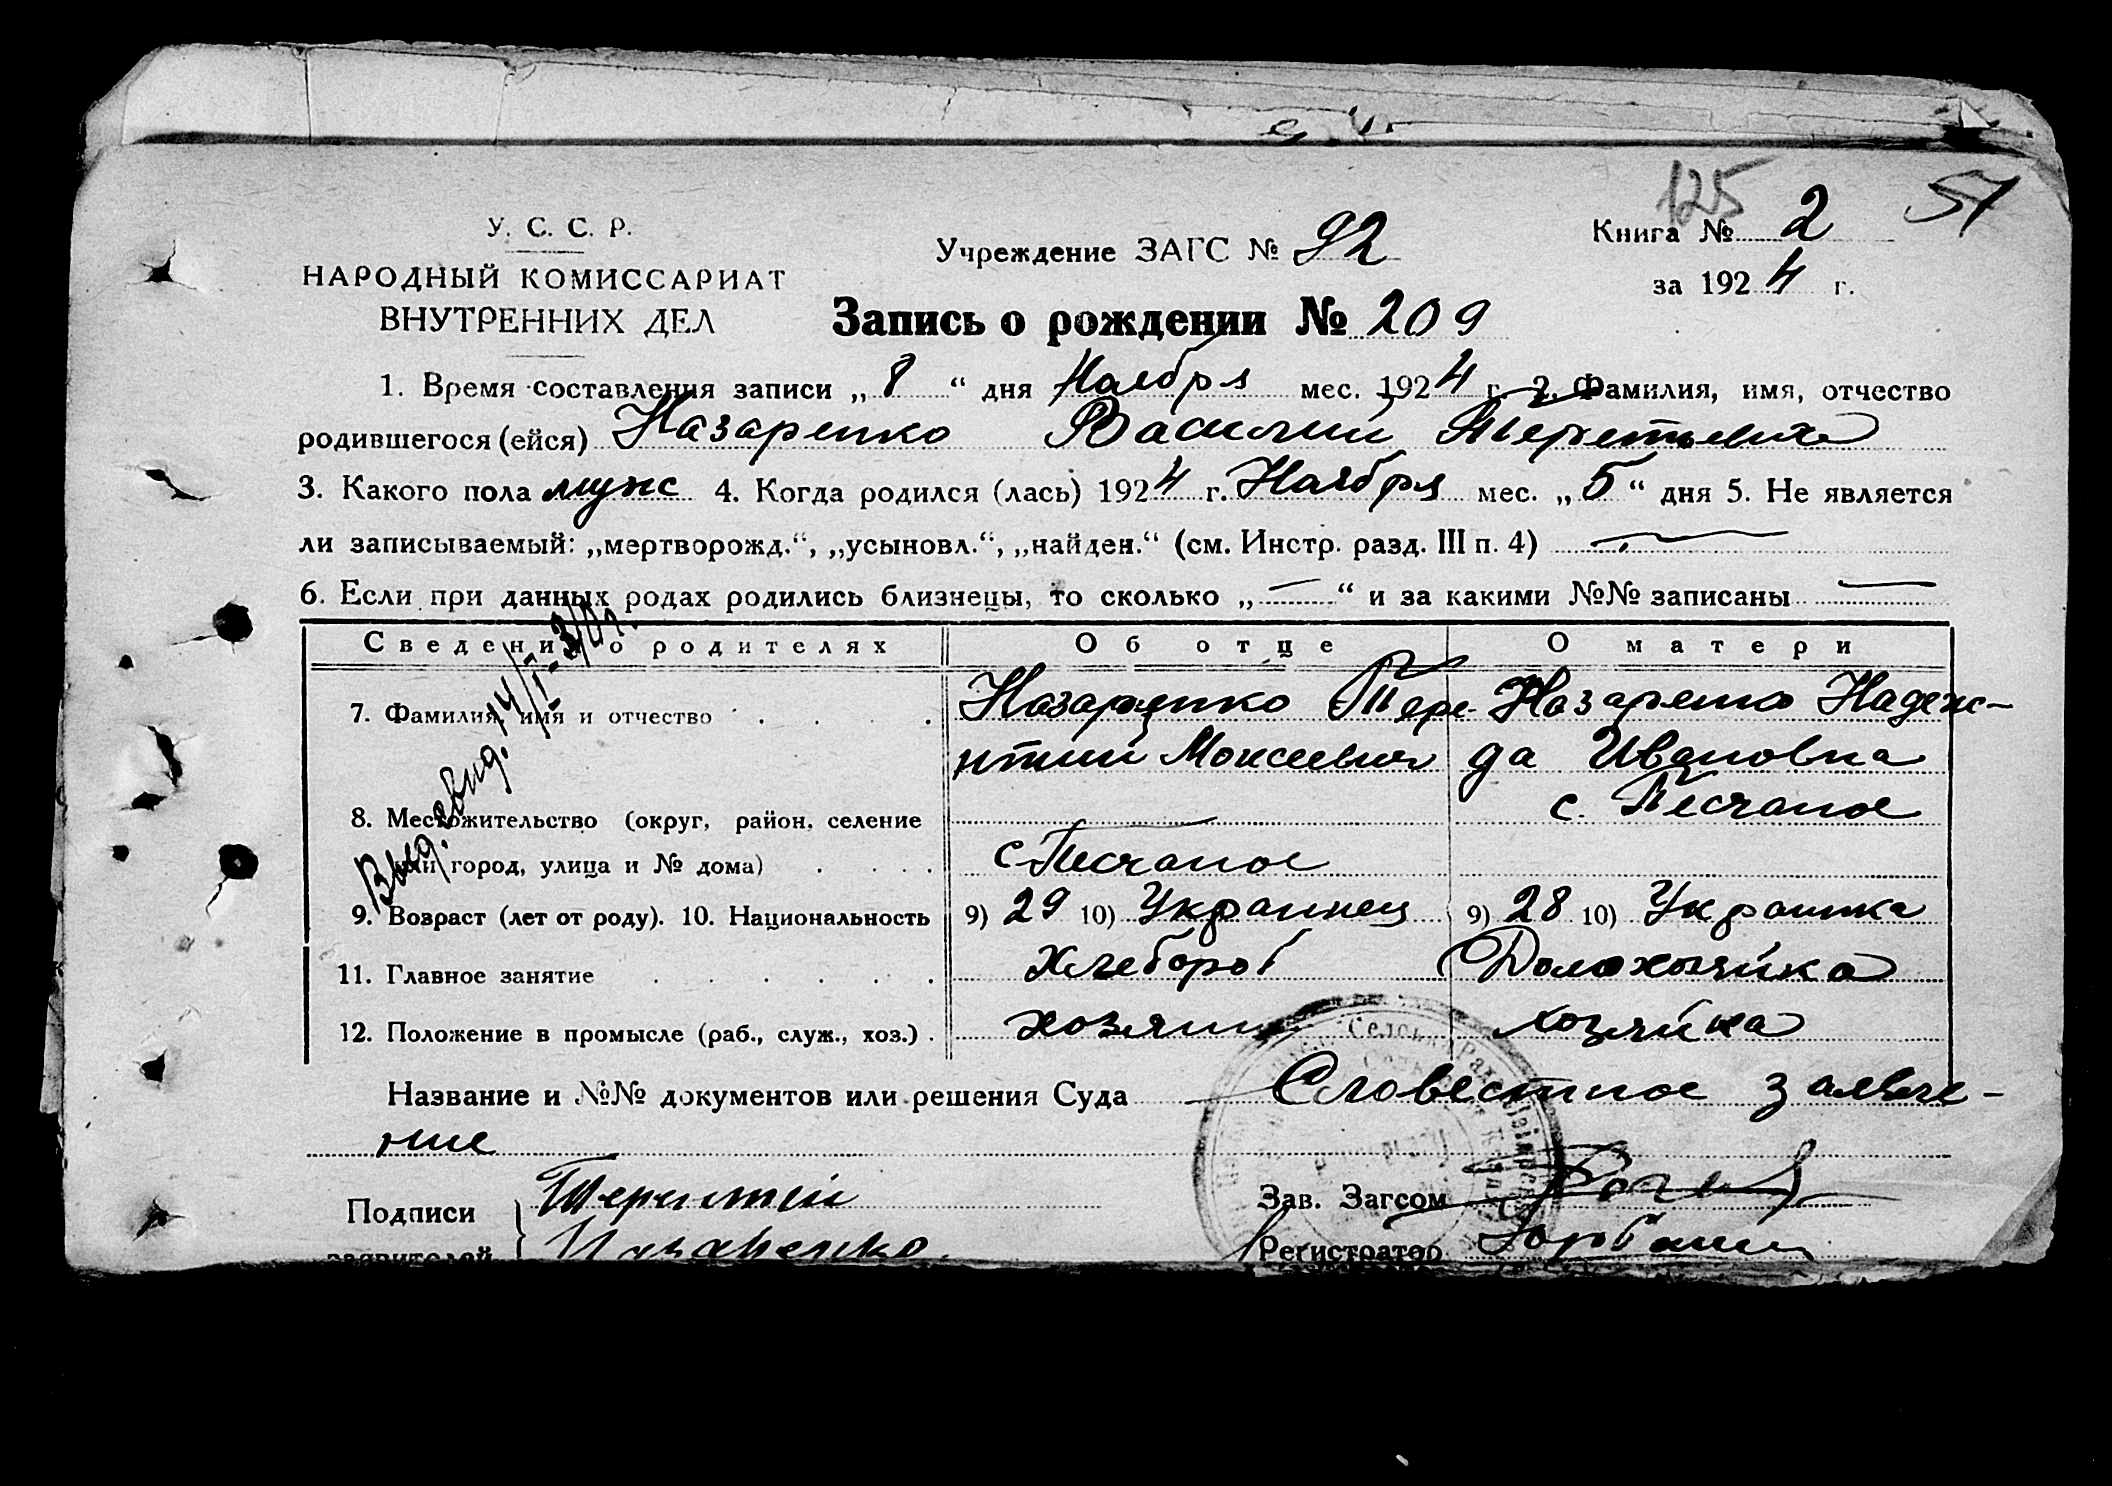 125 57
У. С. С. Р.
НАРОДНЫЙ КОМИССАРИАТ
ВНУТРЕННИХ ДЕЛ
Учреждение ЗАГС № 92
Книга № 2
за 1924 г.
Запись о рождении № 209
1. Время составления записи „8“ дня Ноября мес. 1924 г. 2. Фамилия, имя, отчество
родившегося (ейся) Назаренко Василий Терентьевич
3. Какого пола муж 4. Когда родился (лась) 1924 г. Ноября мес. „5“ дня 5. Не является
ли записываемый: „мертворожд.“, „усыновл.“, „найден.“ (см. Инстр. разд. III п. 4) —
6. Если при данных родах родились близнецы, то сколько „—“ и за какими №№ записаны —
Сведения о родителях Об отце О матери
7. Фамилия, имя и отчество Назаренко Тере- Назаренко Надеж-
нтий Моисеевич да Ивановна
с. Песчаное
8. Местожительство (округ, район, селение
или город, улица и № дома) с. Песчаное
9. Возраст (лет от роду). 10. Национальность 9) 29 10) Украинец 9) 28 10) Украинка
11. Главное занятие Хлебороб Домохозяйка
12. Положение в промысле (раб., служ., хоз.) хозяин хозяйка
Выд. свид. 14/I-
Название и №№ документов или решения Суда Словестное заявле-
ние
Подписи Терентий
заявителей Назаренко
Зав. Загсом
Регистратор Горбань